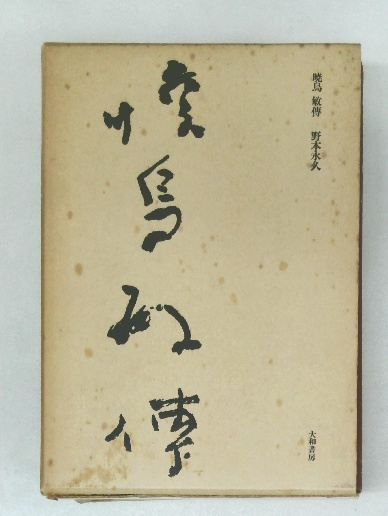 暁烏 敏傳 野本永久
暁烏敏傳
大和書房